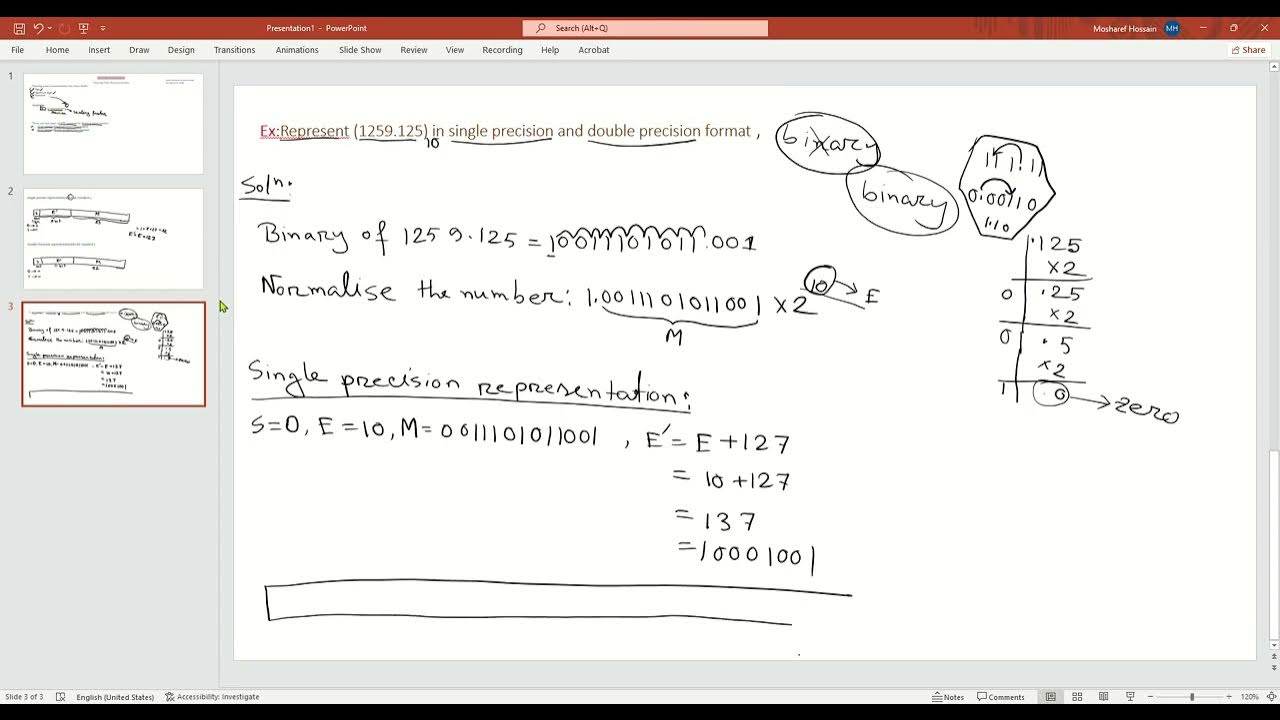 Presentation1 - PowerPoint
Search (Alt+Q)
Mosharef Hossain
MH
File Home Insert Draw Design Transitions Animations Slide Show Review View Recording Help Acrobat
Share
1
2
3
Ex:Represent (1259.125) in single precision and double precision format ,
10
binary
binary
0.00110
1.10
Soln:
Binary of 1259.125 = 10011101011.001
Normalise the number: 1.0011101011001 x 2
10
E
M
.125
x2
0 .25
x2
0 .5
x2
1 .0
zero
Single precision representation:
S=0, E=10, M=0011101011001 , E' = E+127
= 10+127
= 137
= 10001001
Slide 3 of 3
English (United States)
Accessibility: Investigate
Notes
Comments
120%